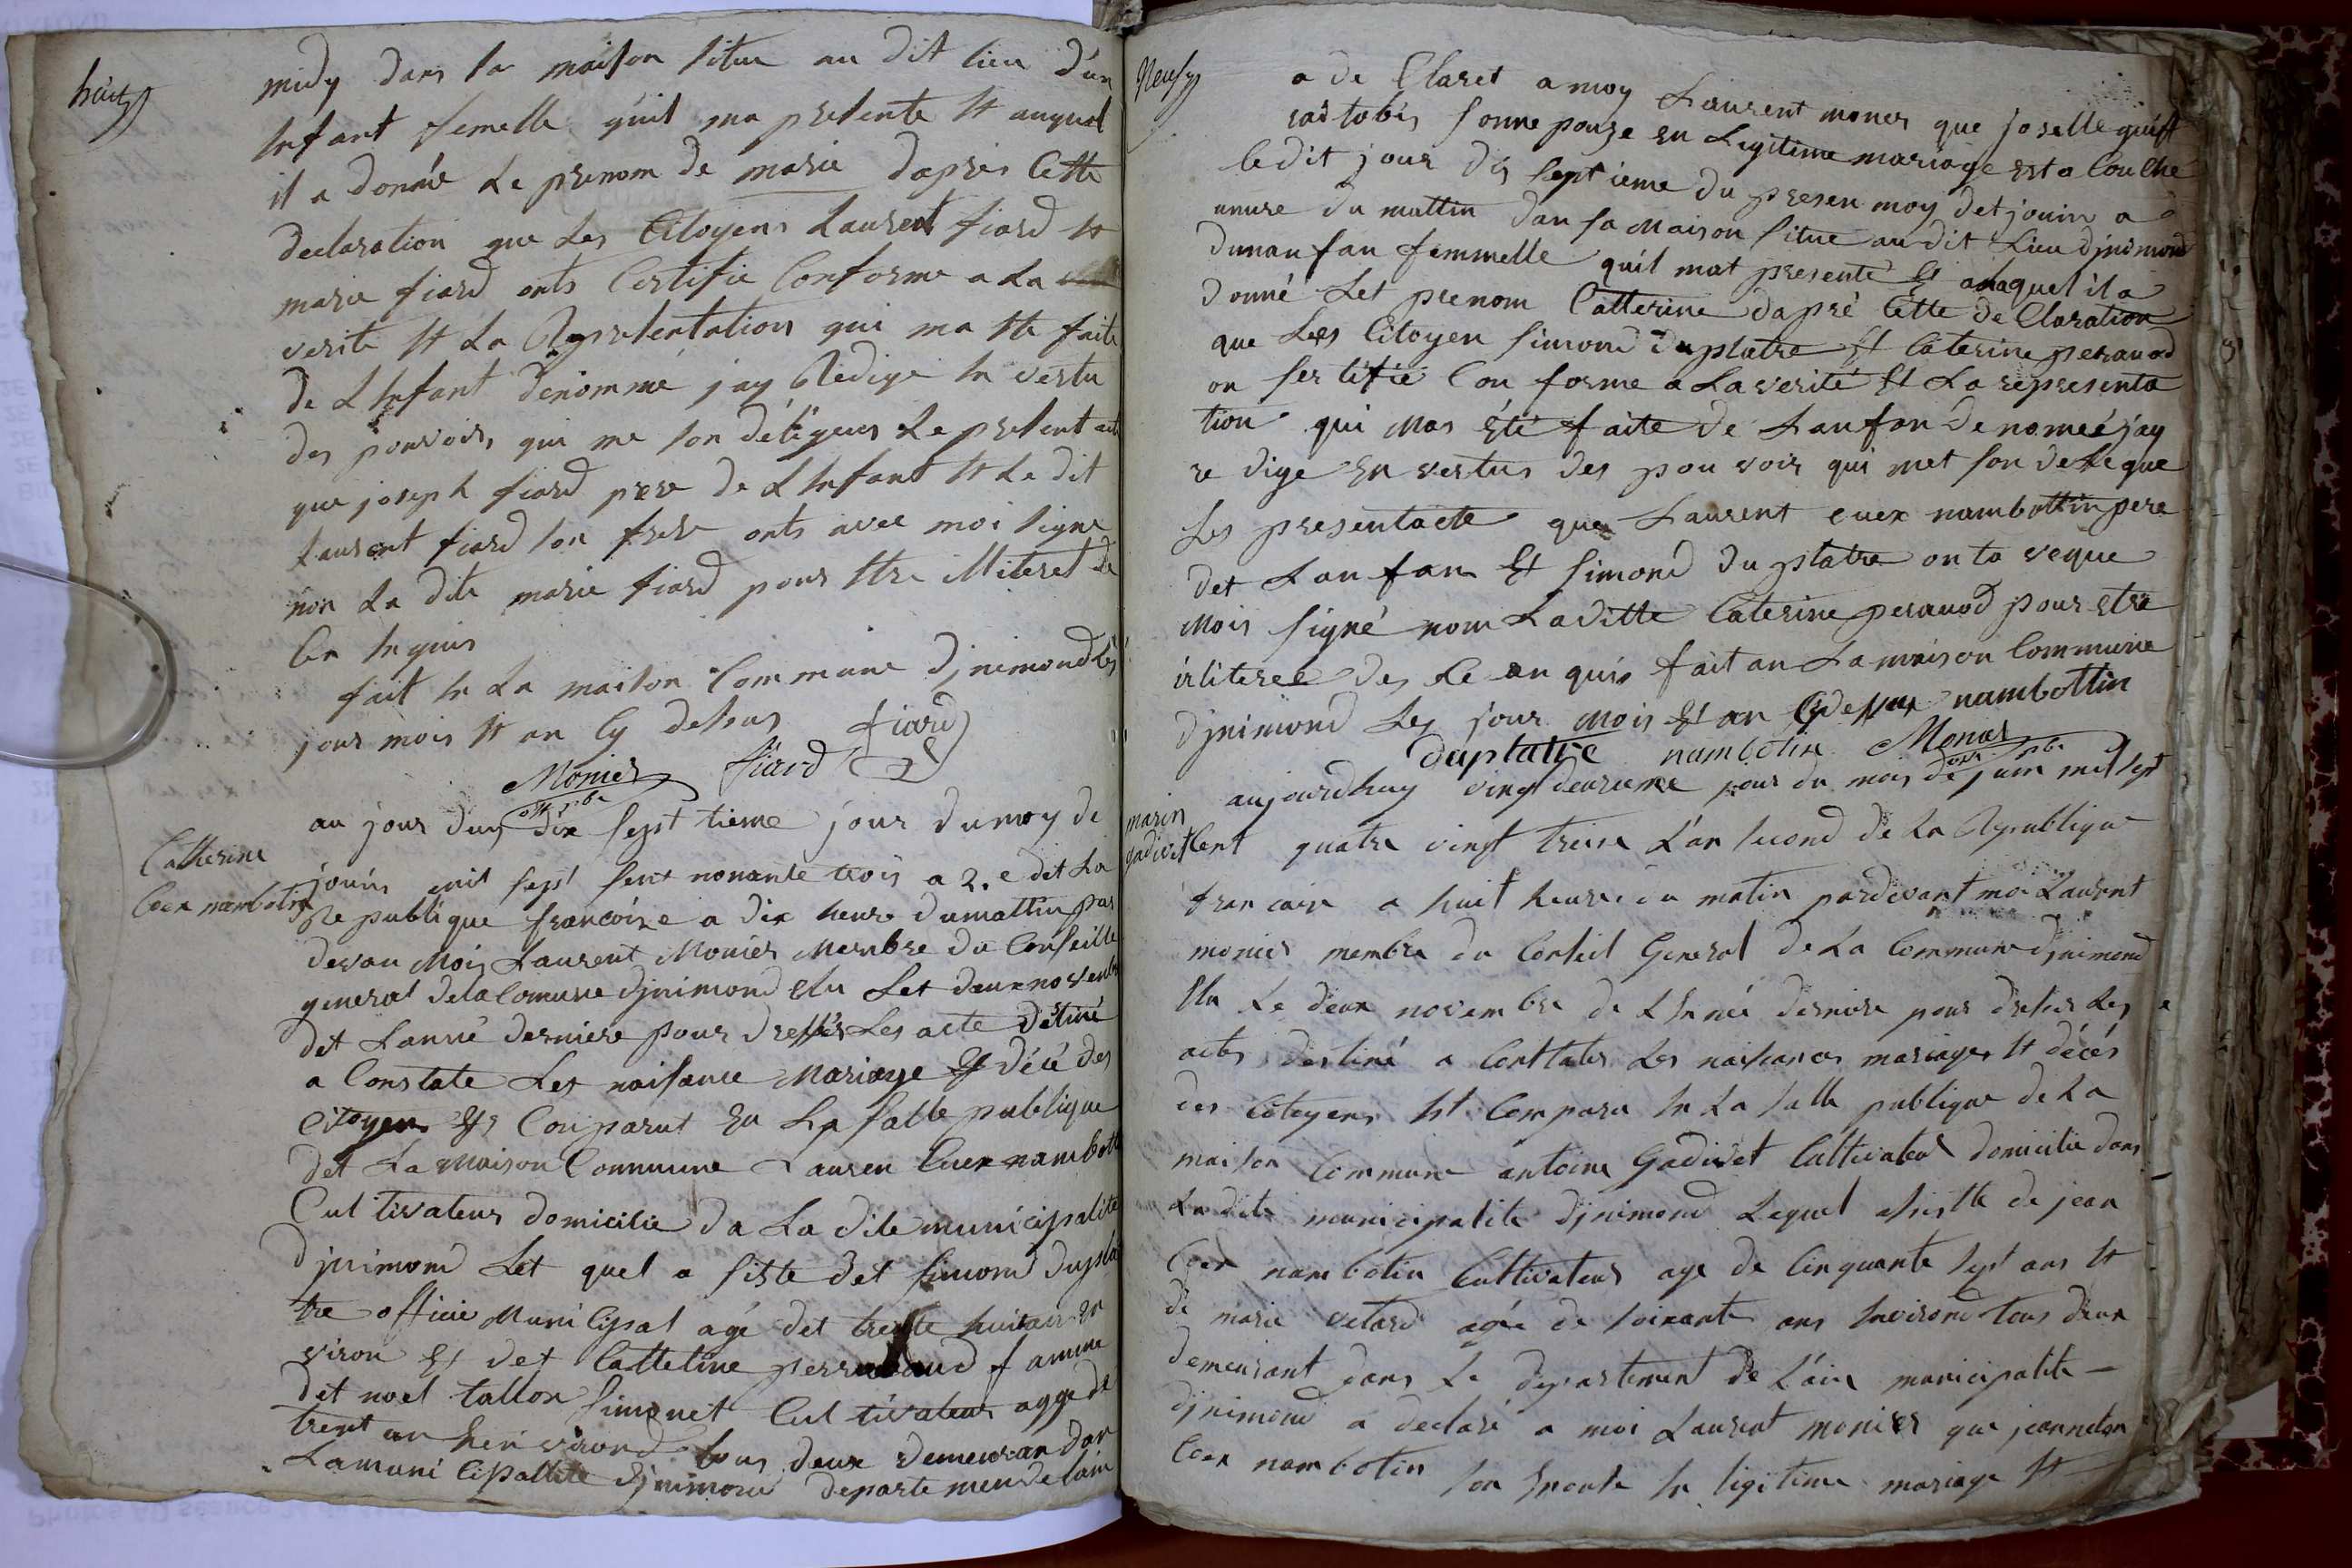 huit
midy dans sa maison situe au dit lieu d'un
Enfant femelle quil ma presente Et auquel
il a donné Le prenom De marie dapres Cette
declaration que Les Citoyens Laurent fiard Et
marie fiard onts Certifie Conforme a La
verite Et La Representation qui ma Ete faite
De L Enfant denommé jay Redige En vertu
des pouvoirs, qui me son délégues Le present acte
que joseph fiard pere De L Enfant Et Le dit
Laurent fiard son frere onts avec moi signe
non La dite marie fiard pour Etre Illiteret de
Ce Enquis
fait En La maison Commune Djnimond Les
jour mois Et an Cy dessus fiard
Monier fiard
off. pbc
Catherine
Coex nambotin
au jour duy dix sept tieme jour du moy de
jouin mil sept sent nonante trois a 2.e det La
Republique francoise a dix heure du mattin par
devan Mois Laurent Monier Membre du Conseille
general dela Comune djnimond Elu Let deux novembre
det Lanné derniere pour dresser Les acte détiné
a Constate Let naisance Mariage Et décé des
Citoyen Est Comparut En La salle publique
det La Maison Commune Lauren Cuex nambotti
Cultivateur domicilie da La dite municipalite
Djnimond Let quel a siste det simond dupla
tre officie Municipal agé det trente huit an En
viron Et det Catteline perraud famme
det noel tallon simonet Cultivateur agge de
trent an hen virond tous deux demeuran dan
Lamunicipallite djnimond departemen de lain
Neuf
a de Claret a moy Laurent monier que joselle guift
castobis sonne pouze en Legitime mariage est a Couche
le dit jour dis septieme du presen moy det jouin a
unure du mattin dan sa Maison situe au dit Lieu djnimond
dunanfan femmelle quil mat presente Et alaquel il a
donné Let prenom Catterine dapré Cette de Claration
que Les Citoyen simond duplatre Et Caterine peraud
on sertifié Conforme a La verité Et La representa
tion qui Mas été faite de Lanfan denomeé jay
redige En vertus des pouvoir qui met son deleque
Les presentacte que Laurent cuex nambottin pere
det Lanfan Et simond duplatre on ta veque
Mois signé nom Laditte Caterine peraud pour etre
illiteree des Ce an quis fait an La maison Commune
djnimond Les jour Mois Et an Cydessus nambottin
duplattre nambotin Monier
off. pbc
marin
gadivet
aujourdhuy vingt deuxieme jour du mois de juin mil sept
Cent quatre vingt treize L'an second de La Republique
francaise a huit heure du matin pardevant moi Laurent
monier membre du Conseil General de La Commune Djnimond
Elu Le deux novembre de L Enné derniere pour dresser Les
actes destiné a Conttater Les naissances mariages Et décés
des Citoyens Est Comparu En La salle publique de La
maison Commune antoine Gadivet Cultivateur domicilie dans
La dite municipalite djnimond Lequel assistte de jean
Coex nambotin Cultivateur age de Cinquante sept ans Et
de marie vetard agée de soixante ans Environd tous deux
demeurant dans Le departement de L'ain municipalite —
djnimond a declaré a moi Laurent monier que jeanneton
Coex nambotin son Epouse En ligitime mariage Et